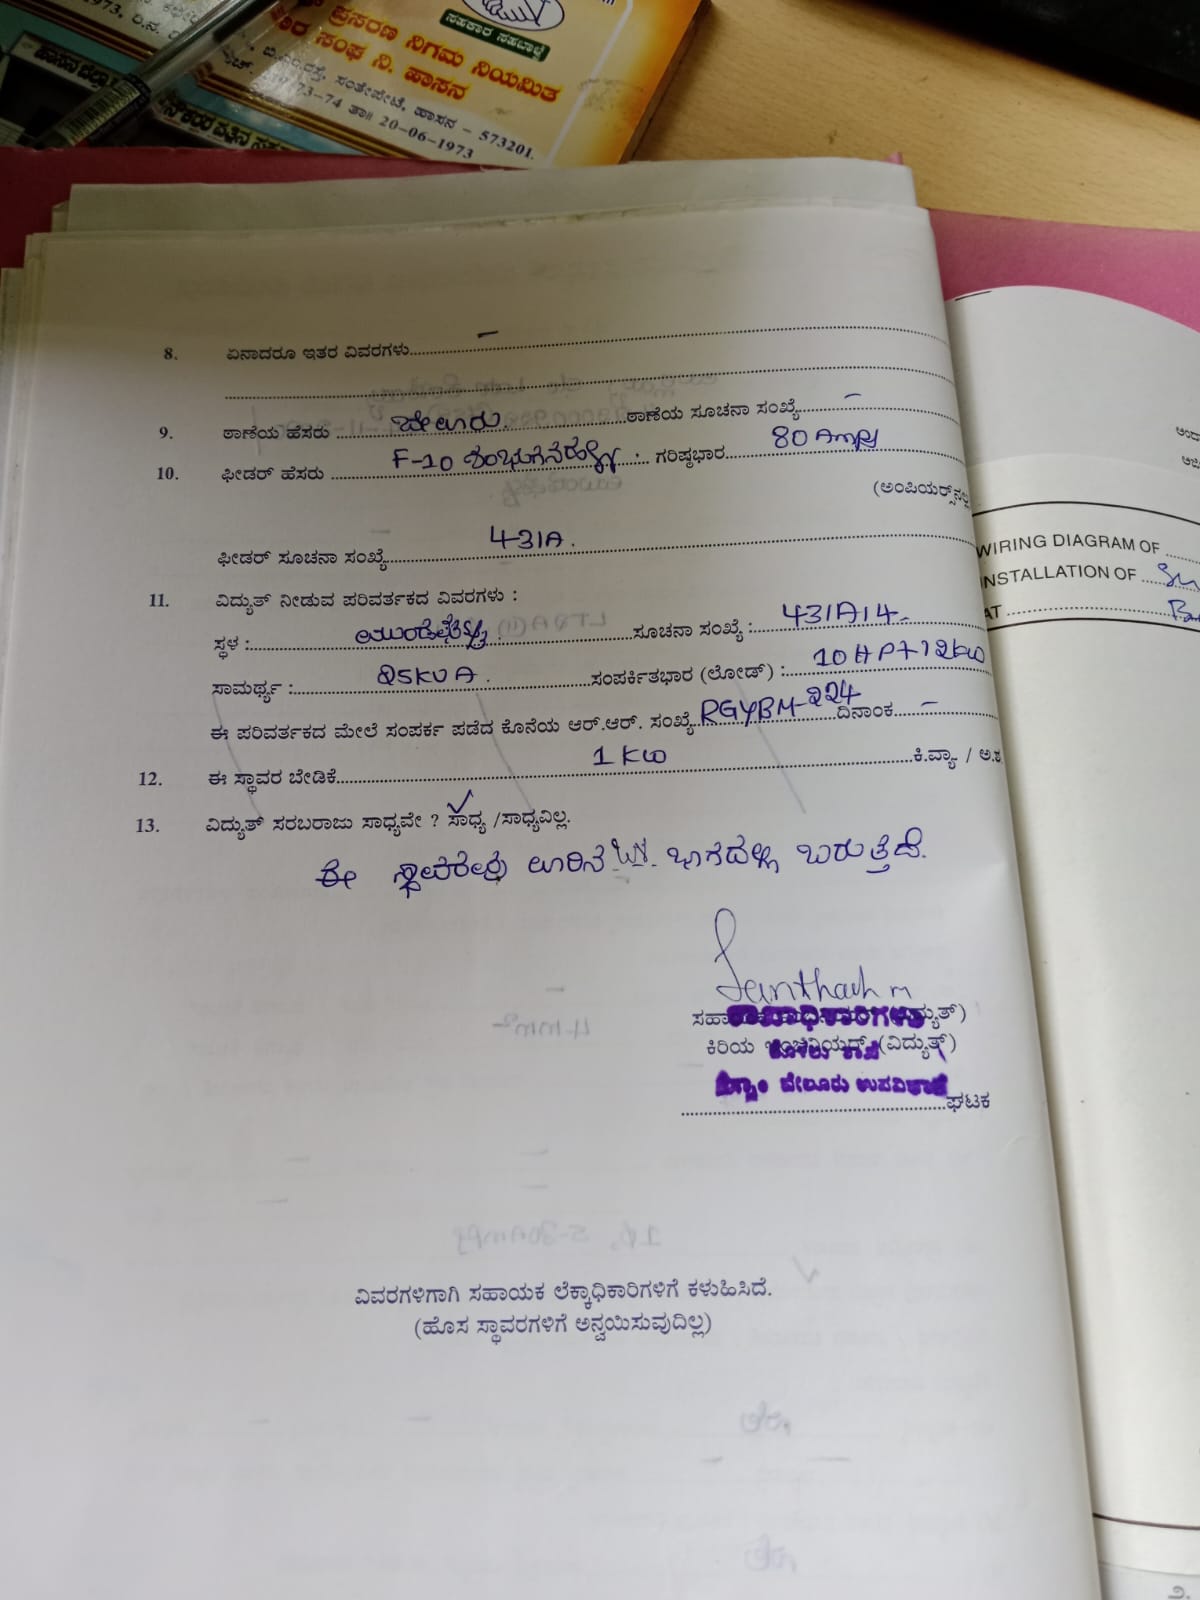 ಸಹಕಾರ ಸಹಬಾಳ್ವೆ
ಪ್ರಸರಣ ನಿಗಮ ನಿಯಮಿತ
ಸಂಘ ನಿ. ಹಾಸನ
ಸಂತೇಪೇಟೆ, ಹಾಸನ - 573201.
73-74 ತಾ॥ 20-06-1973
8. ಏನಾದರೂ ಇತರ ವಿವರಗಳು
9. ಠಾಣೆಯ ಹೆಸರು ಬೇಲೂರು. ಠಾಣೆಯ ಸೂಚನಾ ಸಂಖ್ಯೆ -
10. ಫೀಡರ್ ಹೆಸರು F-10 ಗರಿಷ್ಠಭಾರ 80 Amps
(ಅಂಪಿಯರ್ಸ್‌ನಲ್ಲಿ
ಫೀಡರ್ ಸೂಚನಾ ಸಂಖ್ಯೆ 431A.
11. ವಿದ್ಯುತ್ ನೀಡುವ ಪರಿವರ್ತಕದ ವಿವರಗಳು :
ಸ್ಥಳ : ಸೂಚನಾ ಸಂಖ್ಯೆ : 431A14
ಸಾಮರ್ಥ್ಯ : 25KVA. ಸಂಪರ್ಕಿತಭಾರ (ಲೋಡ್) : 10HP+12KW
ಈ ಪರಿವರ್ತಕದ ಮೇಲೆ ಸಂಪರ್ಕ ಪಡೆದ ಕೊನೆಯ ಆರ್.ಆರ್. ಸಂಖ್ಯೆ RGYBM-224 ದಿನಾಂಕ -
12. ಈ ಸ್ಥಾವರ ಬೇಡಿಕೆ 1 KW ಕಿ.ವ್ಯಾ. / ಅ.ಶ
13. ವಿದ್ಯುತ್ ಸರಬರಾಜು ಸಾಧ್ಯವೇ ? ಸಾಧ್ಯ /ಸಾಧ್ಯವಿಲ್ಲ.
ಈ ಸ್ಥಾವರವು ಊರಿನ ಭಾಗದಲ್ಲಿ ಬರುತ್ತದೆ.
ಕಿರಿಯ (ವಿದ್ಯುತ್)
ಬೇಲೂರು ಉಪವಿಭಾಗ
ಘಟಕ
ವಿವರಗಳಿಗಾಗಿ ಸಹಾಯಕ ಲೆಕ್ಕಾಧಿಕಾರಿಗಳಿಗೆ ಕಳುಹಿಸಿದೆ.
(ಹೊಸ ಸ್ಥಾವರಗಳಿಗೆ ಅನ್ವಯಿಸುವುದಿಲ್ಲ)
WIRING DIAGRAM OF
INSTALLATION OF
AT